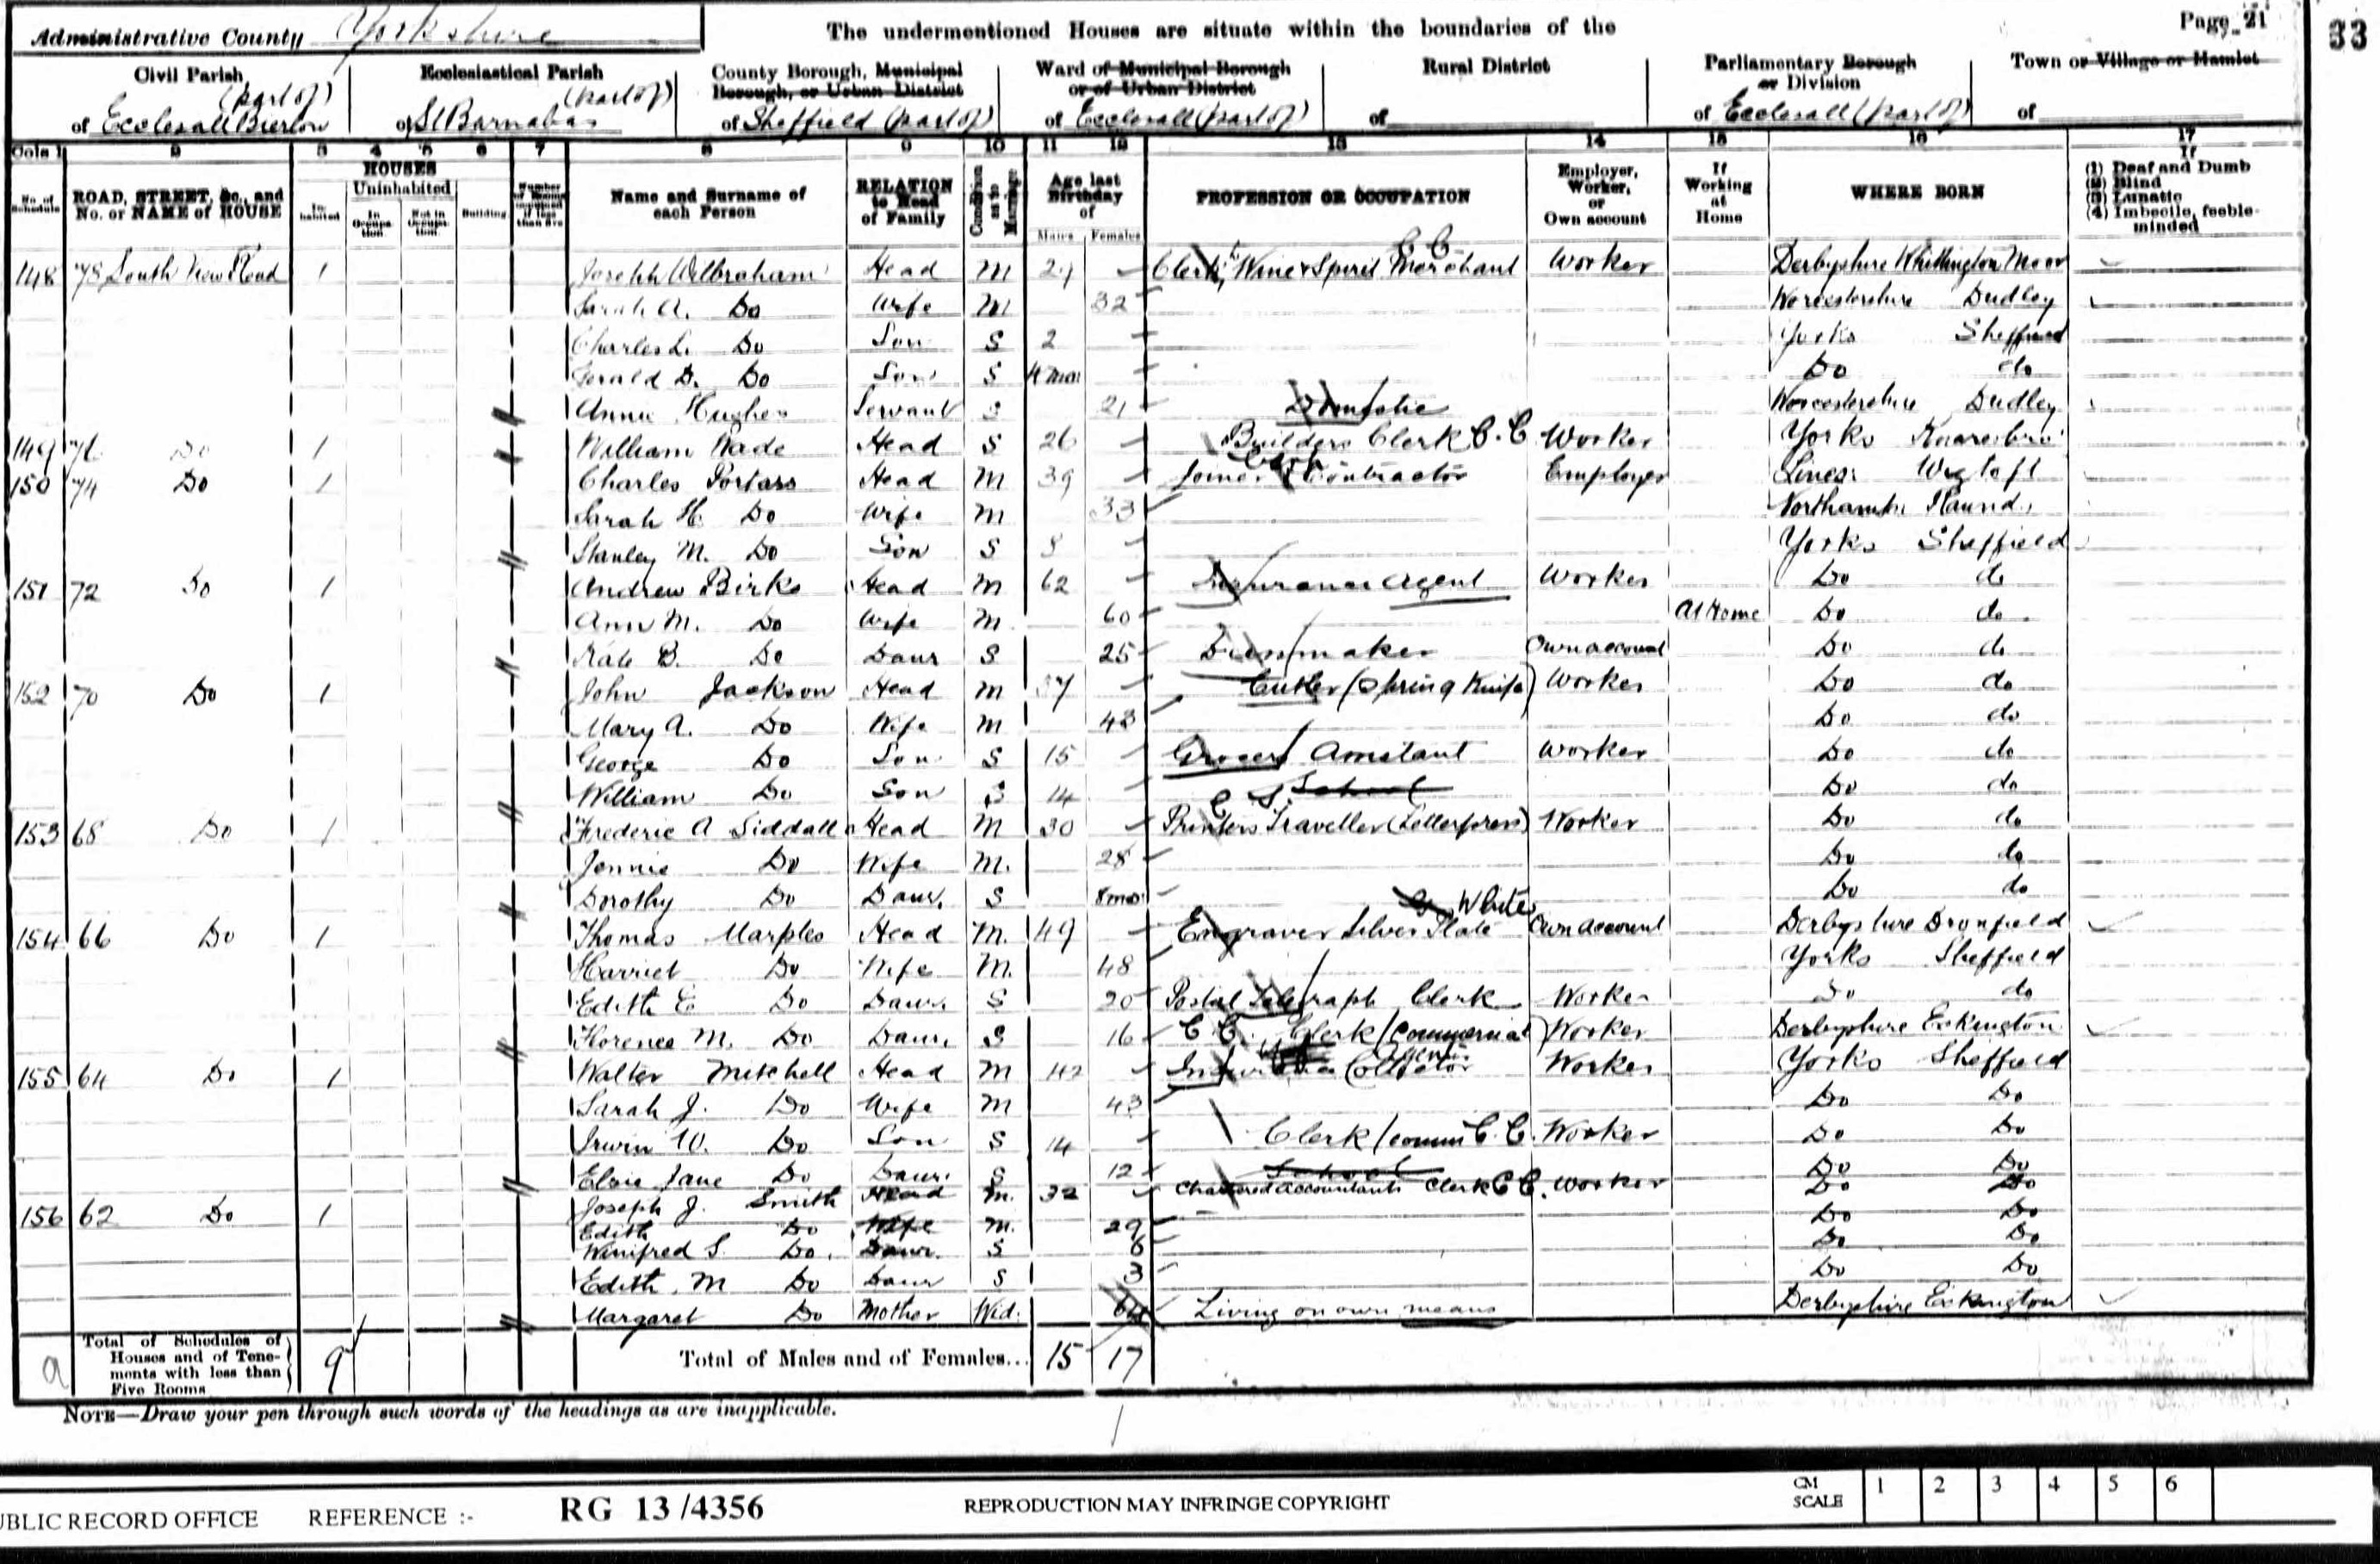 Administrative County Yorkshire
The undermentioned Houses are situate within the boundaries of the
Page 21
33
Civil Parish (part of) of Ecclesall Bierlow
Ecclesiastical Parish (part of) of St Barnabas
County Borough, Municipal Borough, or Urban District of Sheffield (part of)
Ward of Municipal Borough or of Urban District of Ecclesall (part of)
Rural District of
Parliamentary Borough or Division of Ecclesall (part of)
Town or Village or Hamlet of
Cols 1 2 3 4 5 6 7 8 9 10 11 12 13 14 15 16 17
No. of Schedule
ROAD, STREET, &c., and No. or NAME of HOUSE
HOUSES
Inhabited
Uninhabited
In Occupation
Not in Occupation
Building
Number of Rooms occupied if less than five
Name and Surname of each Person
RELATION to Head of Family
Condition as to Marriage
Age last Birthday of
Males Females
PROFESSION OR OCCUPATION
Employer, Worker, or Own account
If Working at Home
WHERE BORN
If (1) Deaf and Dumb (2) Blind (3) Lunatic (4) Imbecile, feeble-minded
148 78 South View Road 1 Joseph Wilbraham Head M 29 Clerk, Wine & Spirit Merchant C C Worker Derbyshire Whittington Moor
Sarah A. Do Wife M 32 Worcestershire Dudley
Charles L. Do Son S 2 Yorks Sheffield
Gerald D. Do Son S 4 mo. Do do
Annie Hughes Servant S 21 Domestic Worcestershire Dudley
149 76 Do 1 William Wade Head S 26 Builders Clerk C. C Worker Yorks Knaresbro'
150 74 Do 1 Charles Portass Head M 39 Joiner Contractor Employer Lincs: Wigtoft
Sarah H. Do Wife M 33 Northamts Raunds
Stanley M. Do Son S 8 Yorks Sheffield
151 72 Do 1 Andrew Birks Head M 62 Insurance Agent Worker Do do
Ann M. Do Wife M 60 At Home Do do
Kate B. Do Daur S 25 Dressmaker Own account Do do
152 70 Do 1 John Jackson Head M 37 Cutler (Spring Knife) Worker Do do
Mary A. Do Wife M 43 Do do
George Do Son S 15 Grocers Assistant Worker Do do
William Do Son S 14 School Do do
153 68 Do 1 Frederic A Siddall Head M 30 Printers Traveller (Letterpress) C S. Worker Do do
Jennie Do Wife M. 28 Do do
Dorothy Do Daur. S 8 mo. Do do
154 66 Do 1 Thomas Marples Head M. 49 Engraver Silver Plate White Own account Derbyshire Dronfield
Harriet Do Wife M. 48 Yorks Sheffield
Edith E Do Daur. S 20 Postal Telegraph Clerk Worker Do do
Florence M. Do Daur. S 16 C C. Clerk (Commercial) Worker Derbyshire Eckington
155 64 Do 1 Walter Mitchell Head M 42 Insurance Collector Agent Worker Yorks Sheffield
Sarah J. Do Wife M 43 Do Do
Irwin W. Do Son S 14 Clerk (comm C. C. Worker Do Do
Elsie Jane Do Daur. S 12 School Do Do
156 62 Do 1 Joseph J. Smith Head M. 32 Chartered accountants Clerk C C. Worker Do Do
Edith Do Wife M. 29 Do Do
Winifred S. Do. Daur. S 6 Do Do
Edith M Do Daur S 3 Do Do
Margaret Do Mother Wid. 64 Living on own means Derbyshire Eckington
a
Total of Schedules of Houses and of Tenements with less than Five Rooms 9
Total of Males and of Females... 15 17
NOTE—Draw your pen through such words of the headings as are inapplicable.
UBLIC RECORD OFFICE REFERENCE :- RG 13 /4356 REPRODUCTION MAY INFRINGE COPYRIGHT CM SCALE 1 2 3 4 5 6